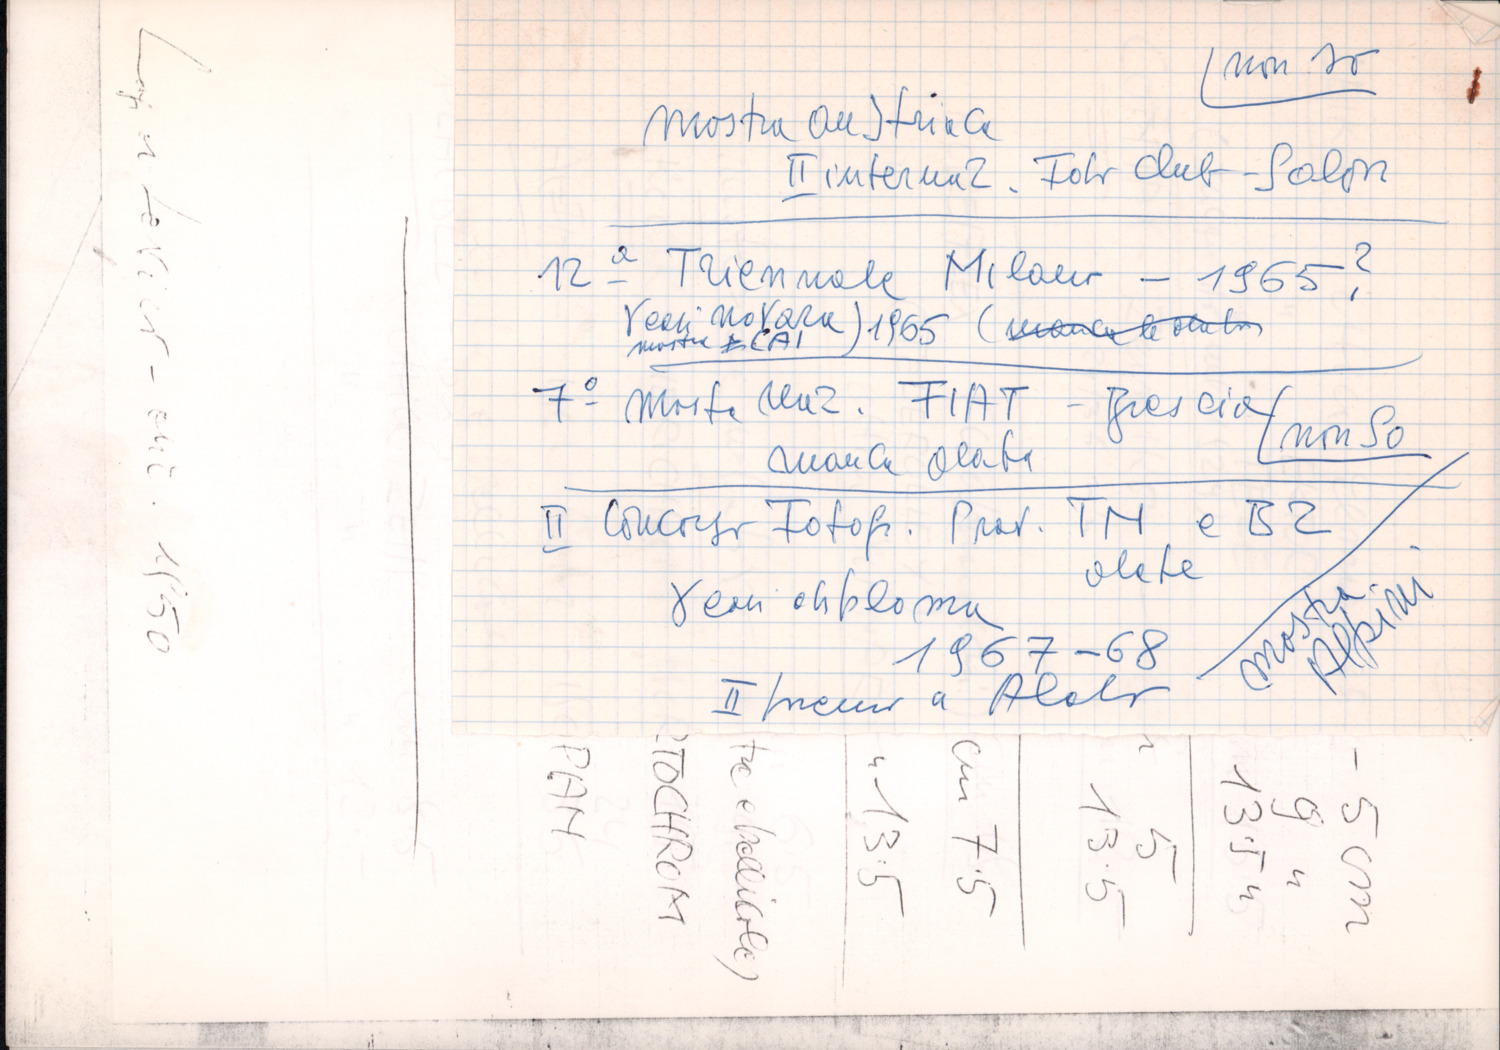 non so
mostra austriaca
II internaz. Foto Club - Salon
12ª Triennale Milano - 1965?
Vedi Novara) 1965 (manca la data
mostra CAI
7º Mostra naz. FIAT - Brescia
non so
manca data
II Concorso Fotogr. Prov. TN e BZ
date
Vedi diploma
1967-68
II premio a Aldo
mostra
Alpini
1950
- 5 cm
9 "
13.5 "
5
13.5
cm 7.5
" 13.5
RTOCHROM
PLAN